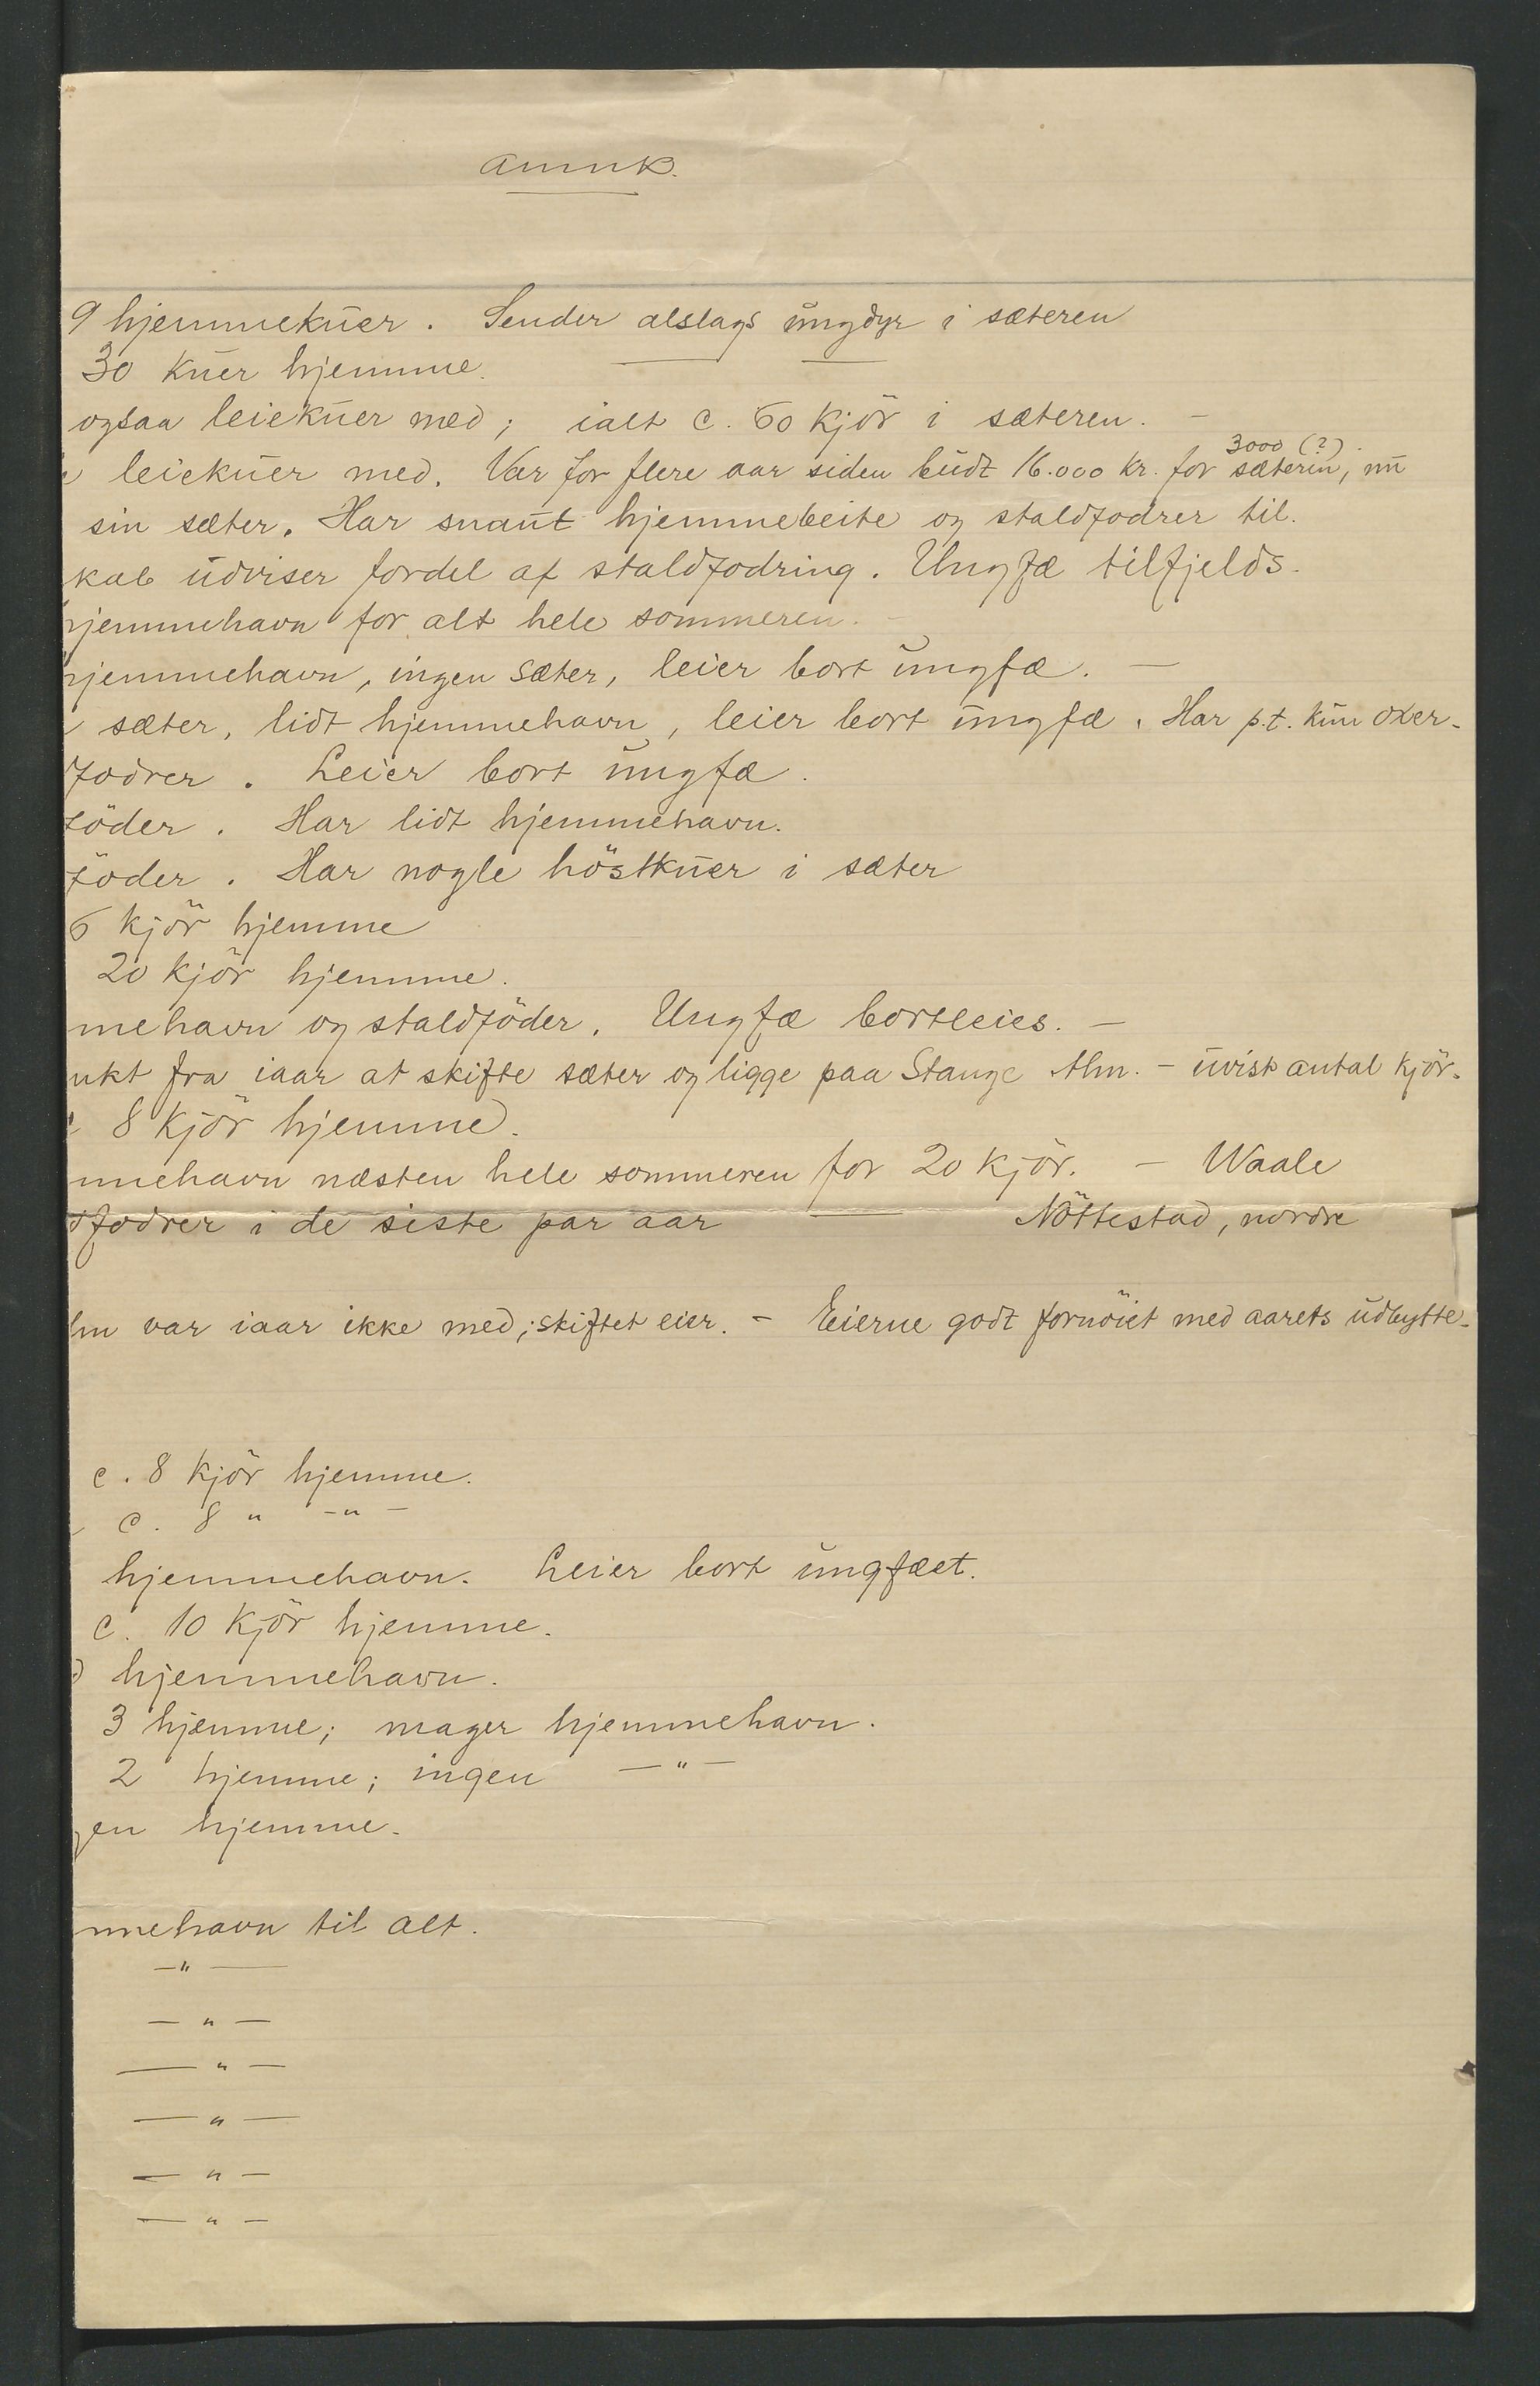 anmk.
9 hjemmekuer. Sender alslags ungdyr i sæteren
30 kuer hjemme.
ogsaa leiekuer med; ialt c. 60 kjör i sæteren. -
3000 (?).
leiekuer med. Var for flere aar siden budt 16.000 kr. for sæterin, nu
sin sæter. Har snaut hjemmebeite og staldfodrer til.
kab udviser fordel af staldfodring. Ungfæ tilfjelds.
hjemmehavn for alt hele sommeren. -
hjemmehavn, ingen sæter, leier bort ungfæ. -
sæter, lidt hjemmehavn, leier bort ungfæ. Har p.t. kun oxer-
fodrer. Leier bort ungfæ.
föder. Har lidt hjemmehavn.
föder. Har nogle höstkuer i sæter
6 kjör hjemme
20 kjör hjemme.
mehavn og staldföder. Ungfæ bortleies. -
nkt fra iaar at skifte sæter og ligge paa Stange Alm. - uvist antal kjör.
8 kjör hjemme.
mehavn næsten hele sommeren for 20 kjör. - Waale
dfodrer i de siste par aar — Nöttestad, nordre
lm var iaar ikke med; skiftet eier. - Eierne godt fornöiet med aarets udbytte.
c. 8 kjör hjemme.
c. 8 " -"-
hjemmehavn. Leier bort ungfæet.
c. 10 kjör hjemme.
hjemmehavn.
3 hjemme; mager hjemmehavn.
2 hjemme; ingen -"-
gen hjemme.
mehavn til alt.
-"-
-"-
-"-
-"-
-"-
-"-